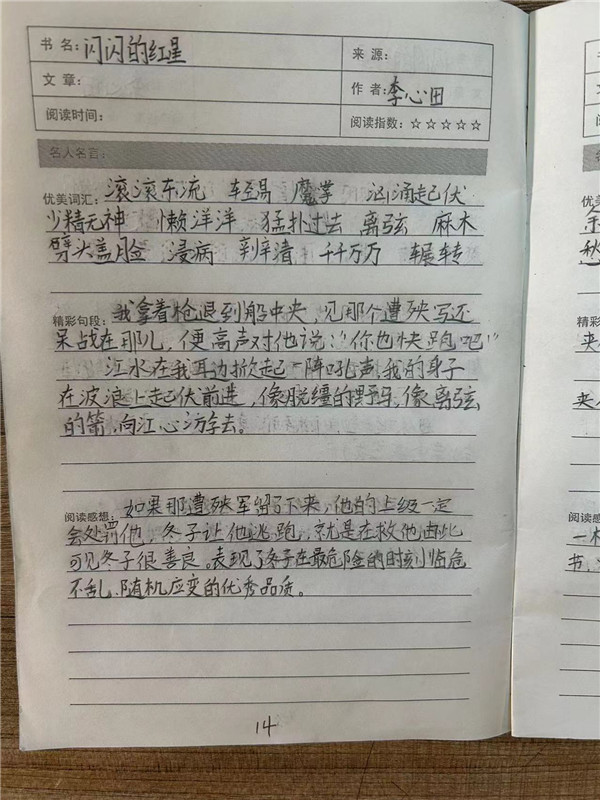 书 名: 闪闪的红星
来 源:
文 章:
作 者: 李心田
阅读时间:
阅读指数: ☆☆☆☆☆
名人名言:
优美词汇: 滚滚东流 轻易 魔掌 汹涌起伏
少精无神 懒洋洋 猛扑过去 离弦 麻木
劈头盖脸 浸病 辛辛清 千千万万 辗转
精彩句段: 我拿着枪退到船中央,见那个遭殃军还
呆战在那儿,便高声对他说:“你也快跑吧”
江水在我耳边掀起一阵吼声,我的身子
在波浪上起伏前进,像脱缰的野马,像离弦
的箭,向江心游去。
阅读感想: 如果那遭殃军留下来,他的上级一定
会处罚他,冬子让他逃跑,就是在救他由此
可见冬子很善良。表现了冬子在最危险的时刻临危
不乱、随机应变的优秀品质。
14
余
愁
精彩句段
夹
夹
阅读感
一木
节,